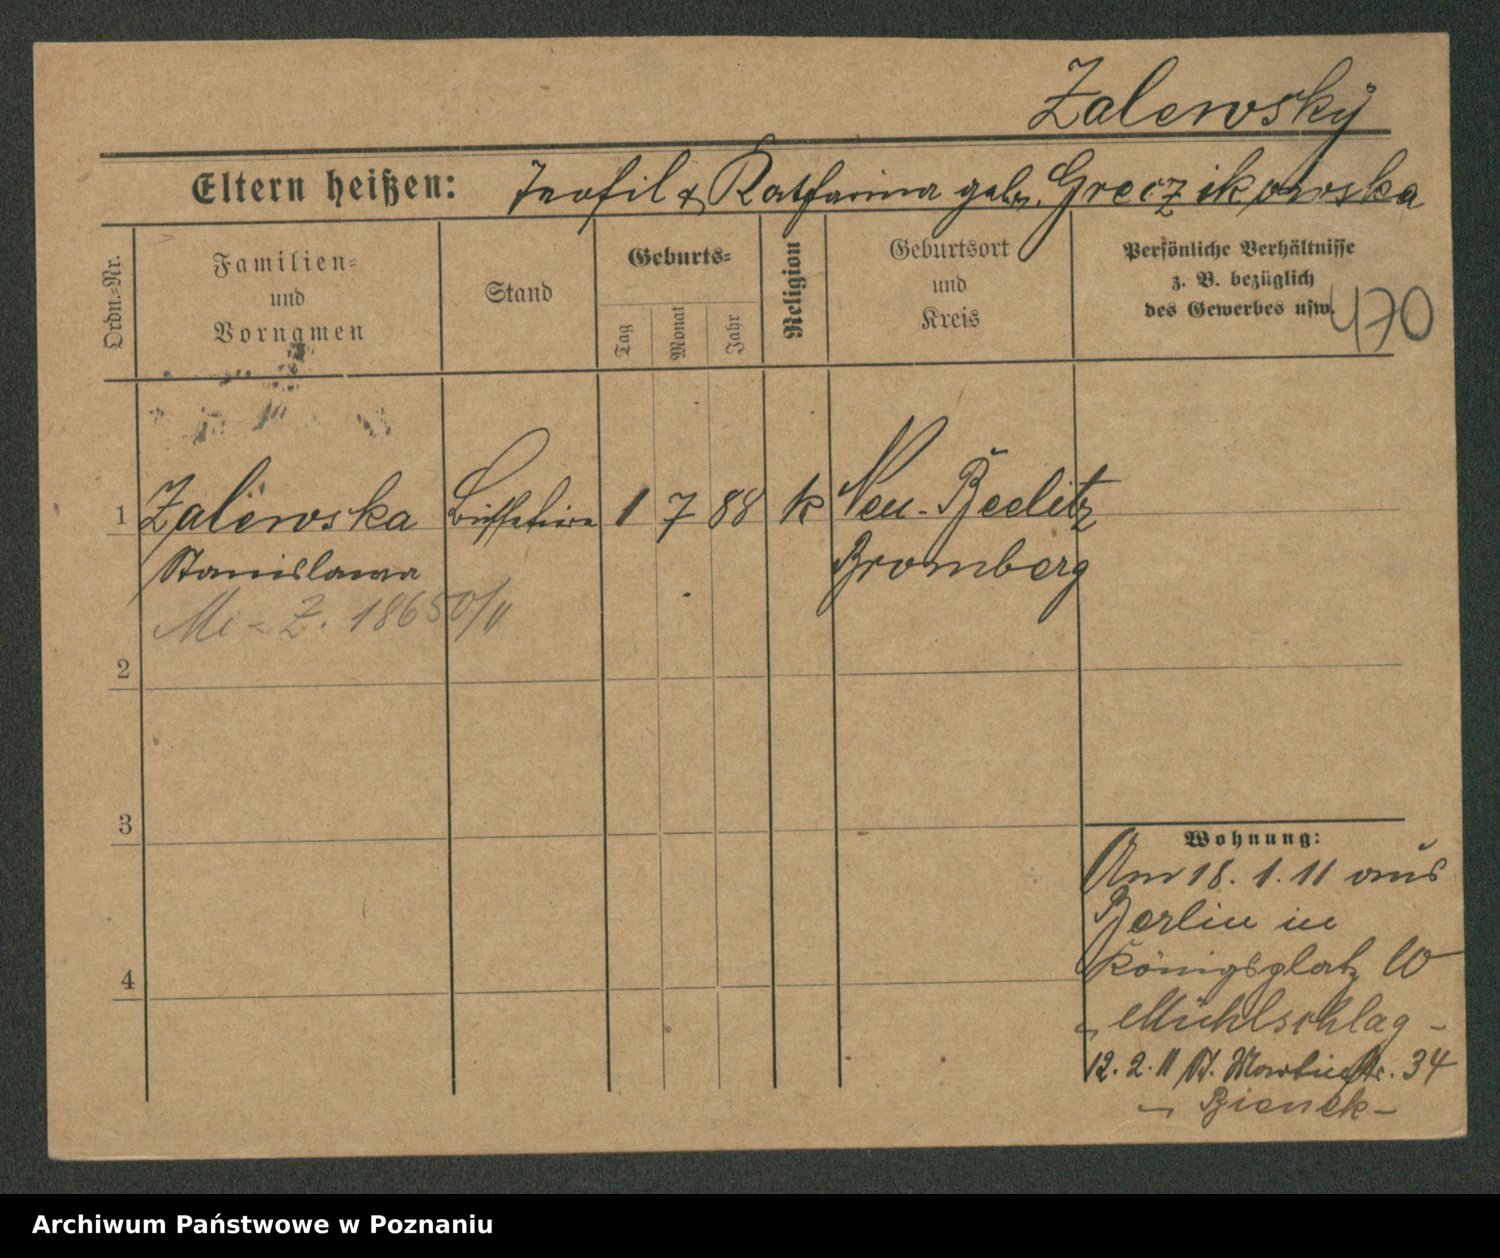 Zalewsky
Eltern heißen: Teofil & Katharina geb. Greczikowska
Ordn.-Nr.
Familien-
und
Vornamen
Stand
Geburts-
Tag
Monat
Jahr
Religion
Geburtsort
und
Kreis
Persönliche Verhältnisse
z. B. bezüglich
des Gewerbes usw.
470
1 Zalewska Büffetiere 1 7 88 k Neu-Beelitz
Stanislawa Bromberg
Mi - Z. 1865 0/11
2
3
4
Wohnung:
Am 18. 1. 11 aus
Berlin in
Königsplatz 10
- Mühlschlag -
12. 2. 11 St. Martinstr. 34
- Bienek -
Archiwum Państwowe w Poznaniu